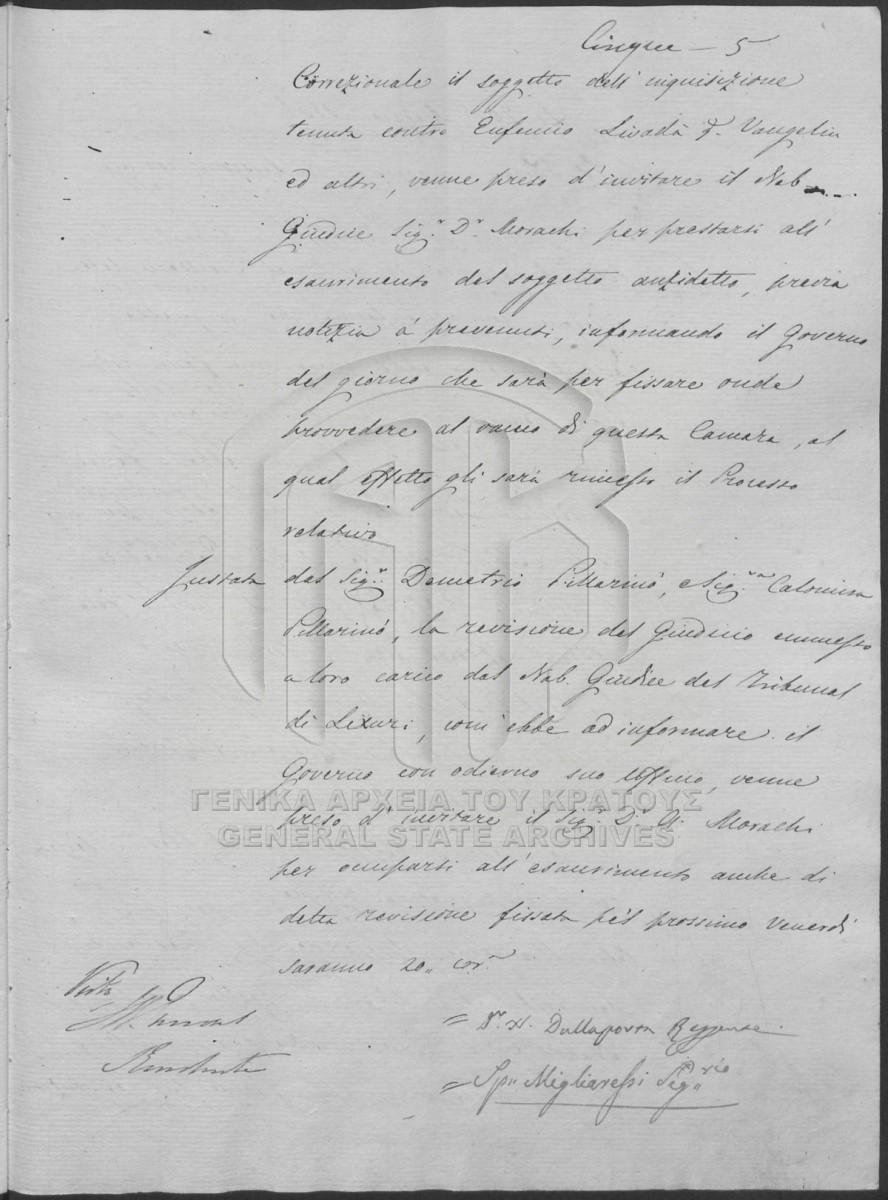 Cinque – 5
Correzionale il soggetto dell' inquisizione
tenuta contro Eufemio Livadà q. Vangelin
ed altri, venne preso d' invitare il Nob.
Giudice Sig.r D.r Morachi per prestarsi all'
esaurimento del soggetto anzidetto, previa
notizia á prevenuti, informando il Governo
del giorno che sarà per fissare onde
provvedere al vacuo di questa Camara, al
qual effetto gli sará rimesso il Processo
relativo
Instata dal Sig.r Demetrio Pillarinó, e Sig.ra
Pillarinó, la revisione del Giudicio emmesso
a loro carico dal Nob. Giudice del Tribunal
di Lixuri, com' ebbe ad informare il
Governo con odierno suo Ufficio, venne
preso d' invitare il Sig.r D.r Morachi
per occuparsi all' esaurimento anche di
detta revisione fissata pel prossimo Venerdi
saranno 20,, cor.
Visto
= D.r Dallaporta Reggente
Residente
= Sp.n Migliaressi Seg.rio
ΓΕΝΙΚΑ ΑΡΧΕΙΑ ΤΟΥ ΚΡΑΤΟΥΣ
GENERAL STATE ARCHIVES